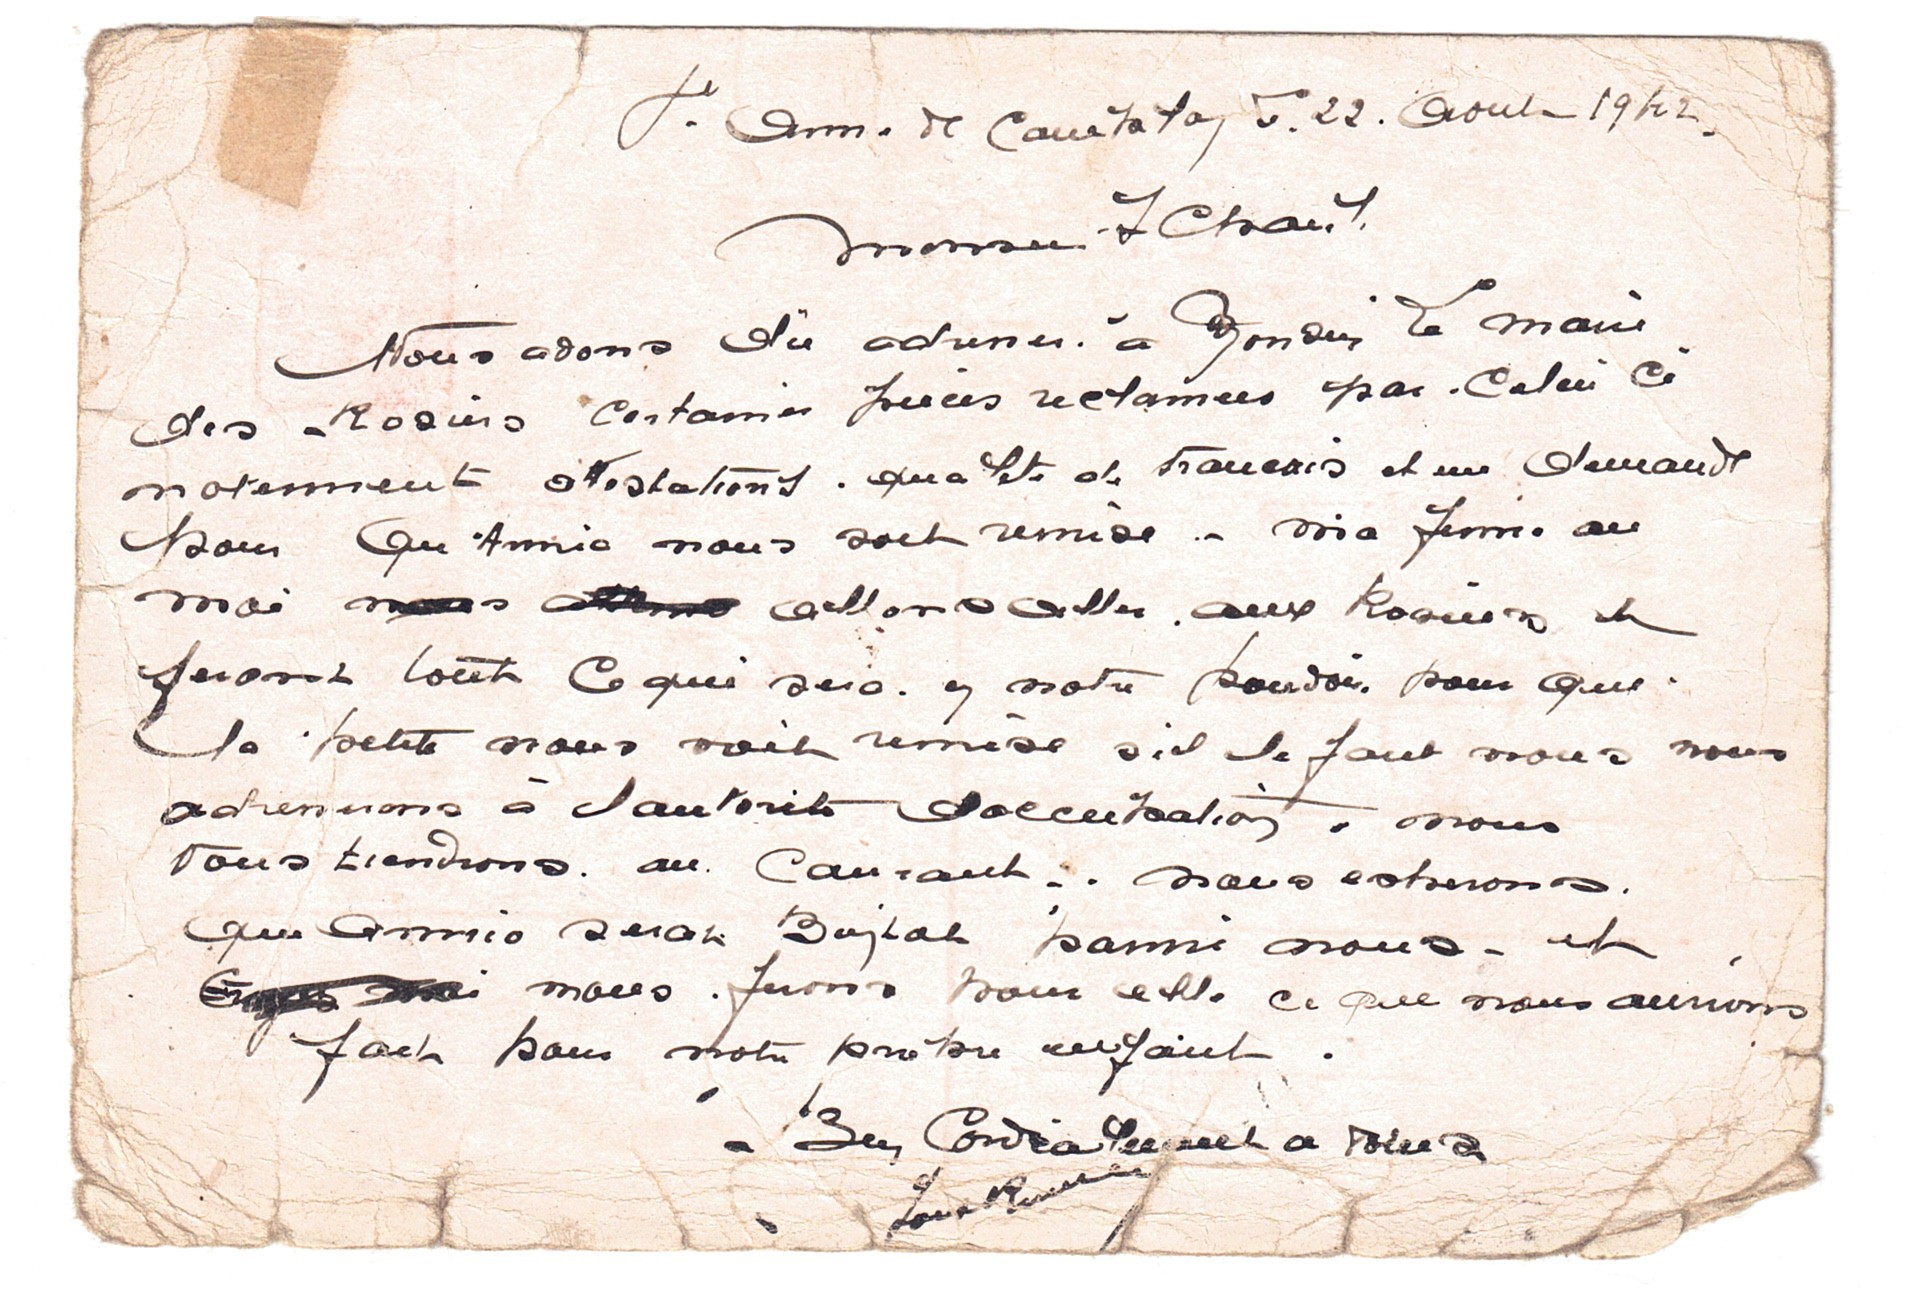 Ste Anne de Campbon, 22 Aout 1942.
Monsieur
Nous avons dû adresser à Monsieur le maire
des Rosiers certaines pièces reclamees par Celui ci
notemment attestations qualité de francais et une demande
pour qu'Annie nous soit remise - ma femme ou
moi allons aller aux Rosiers et
feront tout ce qui sera en notre pouvoir pour que
la petite nous soit remise s'il le faut nous nous
adresserons à l'autorité d'occupation. nous
vous tiendrons au Courant - nous esperons
que Annie serat Bientot parmi nous - et
nous ferons pour elle ce que nous aurions
fait pour notre propre enfant.
- Bien Cordialement a vous